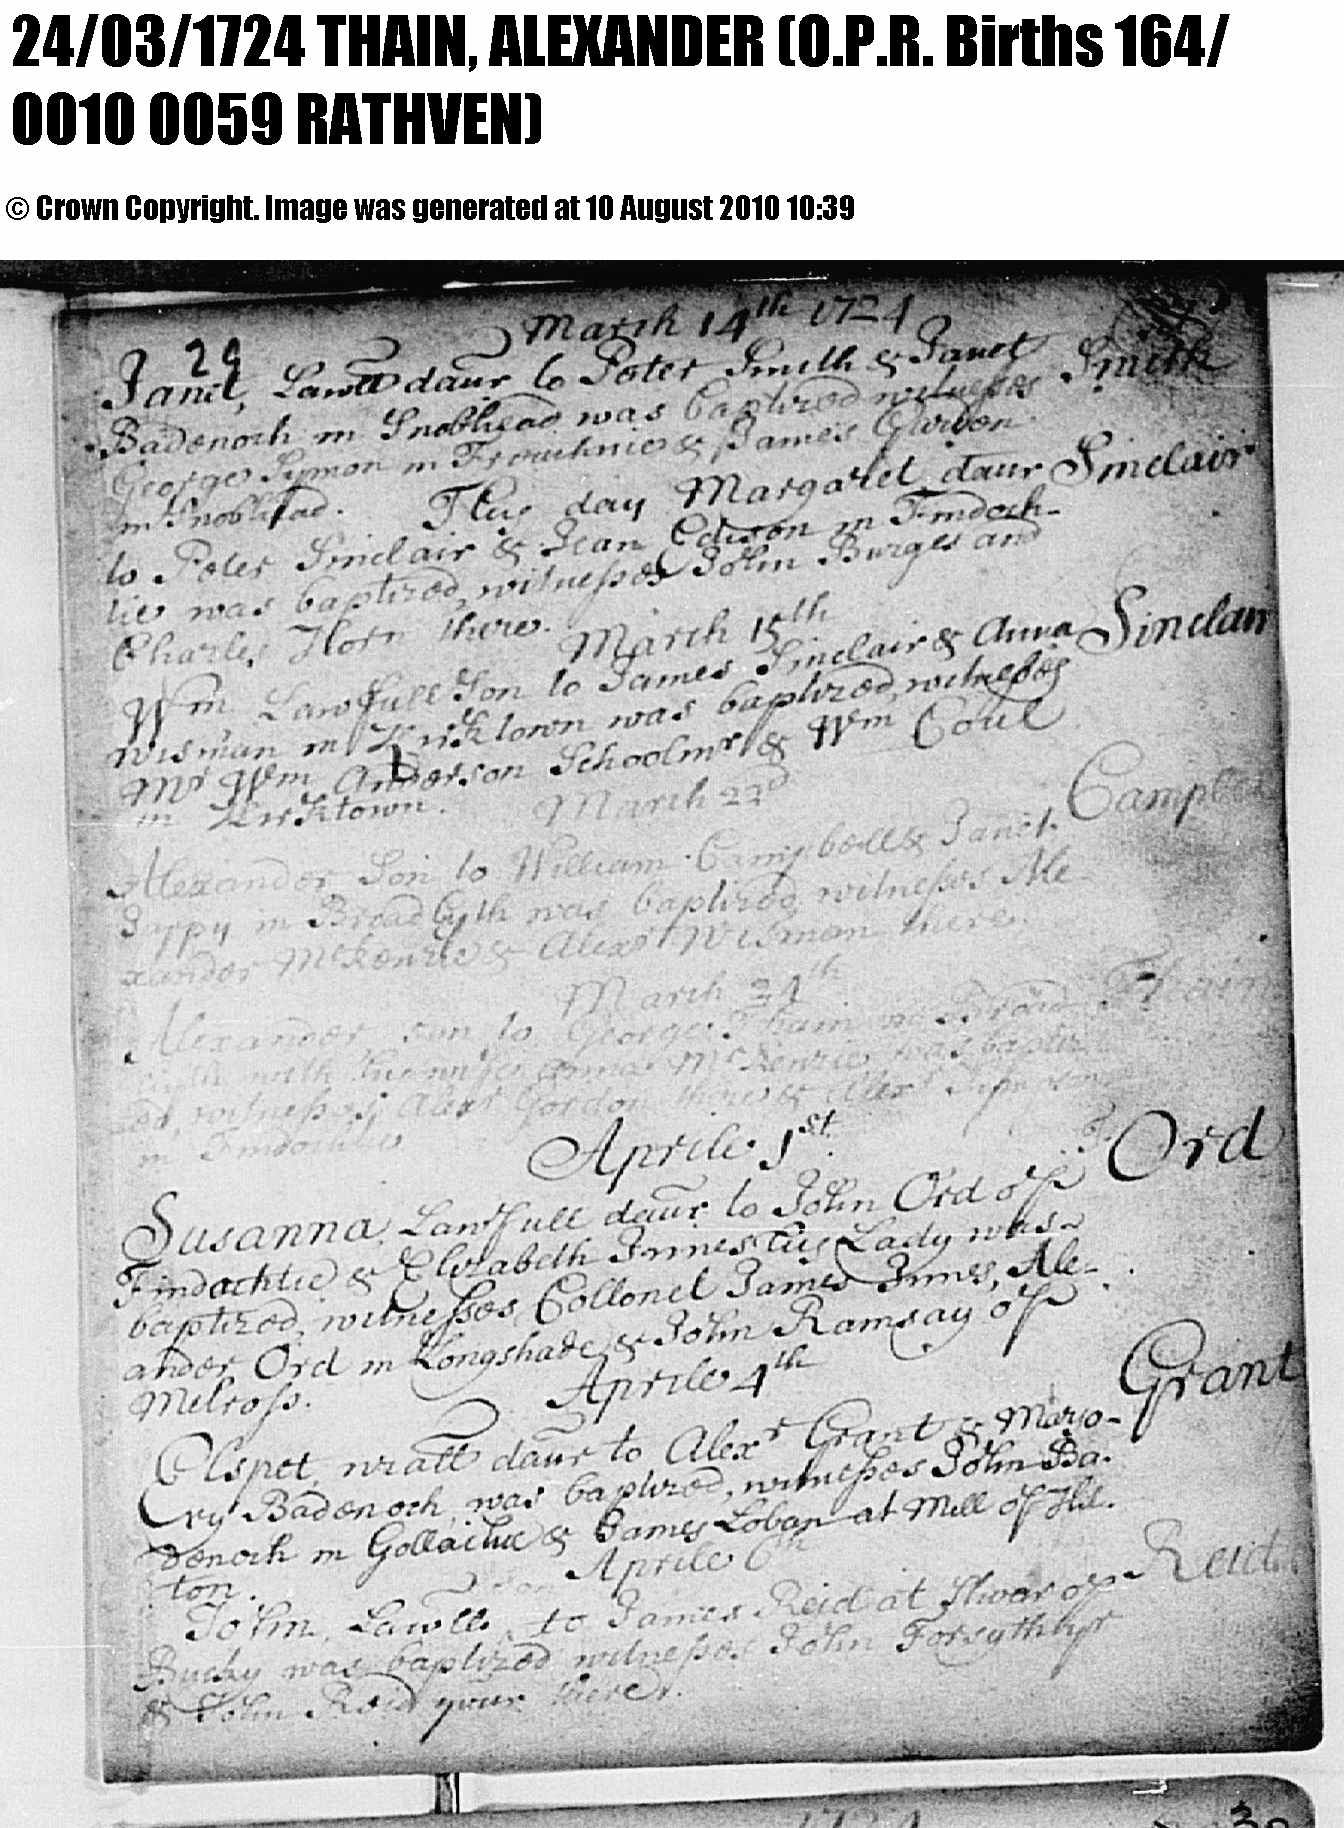 24/03/1724 THAIN, ALEXANDER (O.P.R. Births 164/
0010 0059 RATHVEN)
© Crown Copyright. Image was generated at 10 August 2010 10:39
March 14th 1724
29
Janet, Lawll daur to Peter Smith & Janet Smith
Badenoch in Knobhead was baptized witnesses
George Symon in & James
in Knobhead. This day Margaret daur Sinclair
to Peter Sinclair & Jean in Findoch-
tie was baptized, witnesses John Burges and
Charles Horn there.
March 15th
Wm Lawfull Son to James Sinclair & Anna Sinclair
Wisman in Kirktown was baptized, witnesses
Mr Wm Anderson Schoolmr & Wm Coul
in Kirktown.
March 22d
Alexander Son to William Campbell & Janet Campbell
Jappy in Broadbyth was baptized, witnesses Ale-
xander McKenzie & Alexr Wisman there.
March 24th
Alexander son to George Thain in Broad Thain
with his wife Anna McKenzie was baptiz
ed, witnesses Alexr Gordon there & Alexr
in Findochtie
Aprile 1st.
Susanna, Lawfull daur to John Ord of Ord
Findachtie & Elizabeth Innes his Lady was
baptized, witnesses Collonel James Innes, Ale-
ander Ord in Longshade & John Ramsay of
Melross.
Aprile 4th
Elspet, nrall daur to Alexr Grant & Marjo- Grant
ry Badenoch, was baptized, witnesses John Ba-
denoch in Gollachie & James Loban at Mill of Hil-
ton.
Aprile 6th
son
John, Lawll to James Reid at of Reid
Bucky was baptized witnesses John Forsyth
& John Reid younr there.
1724
30